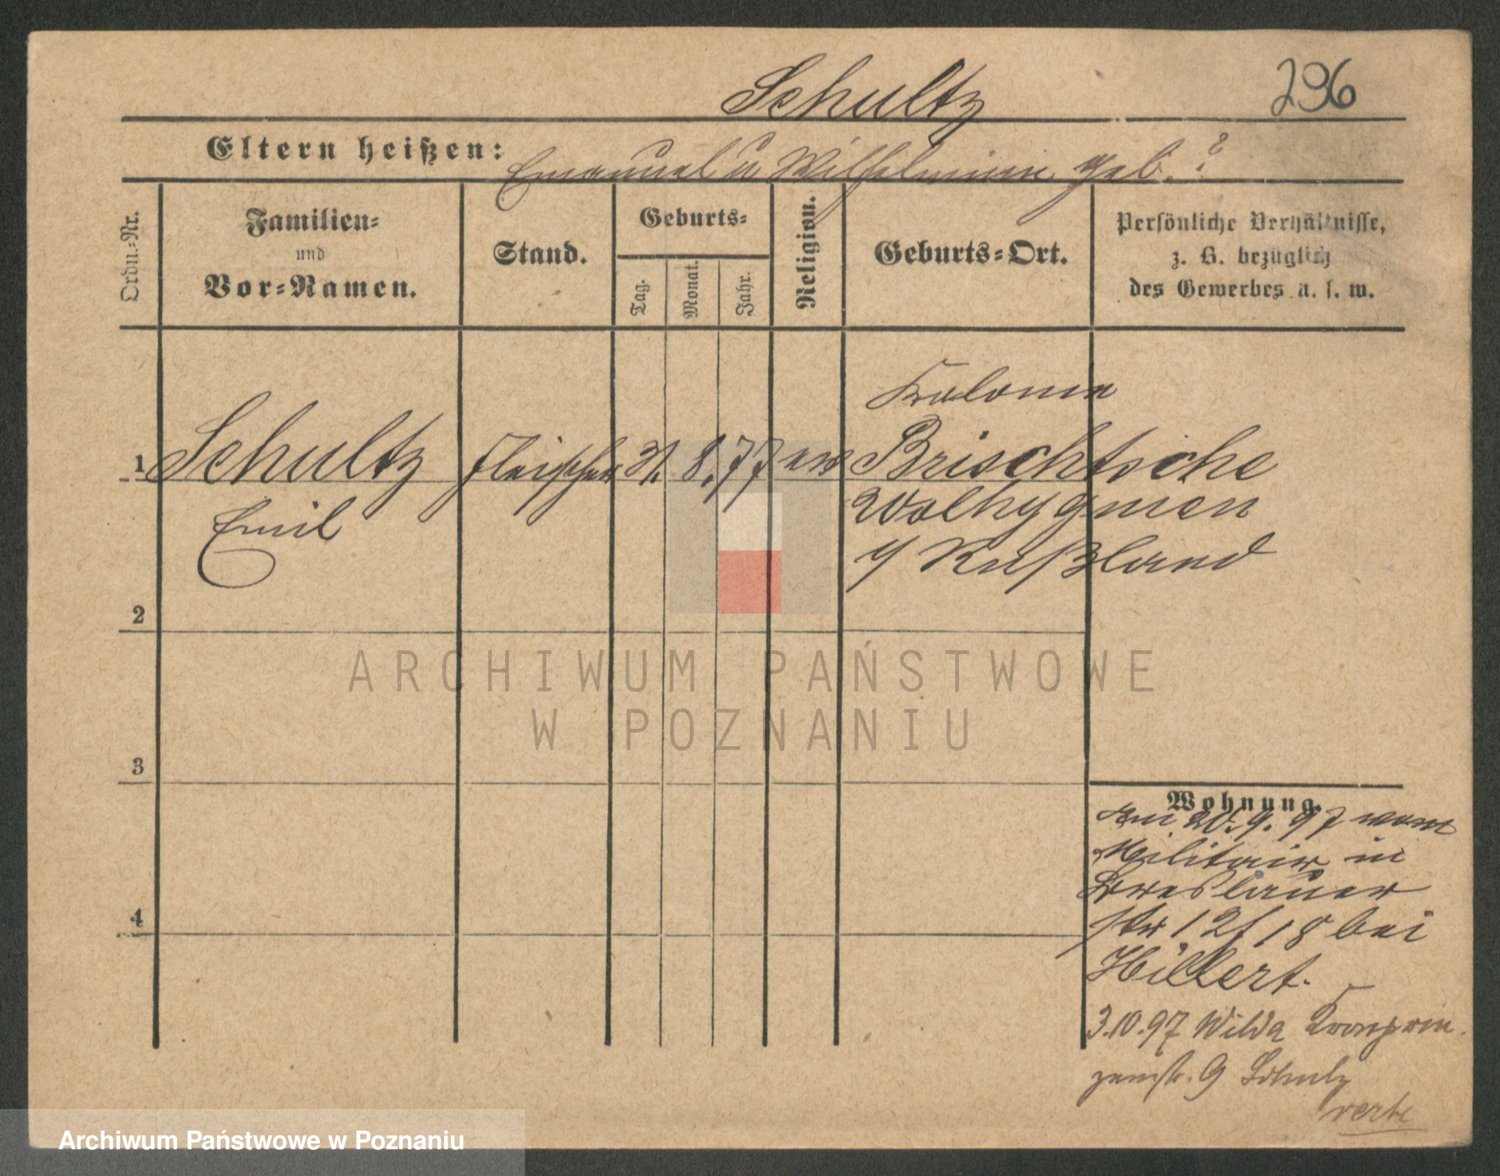 Schultz 296
Eltern heißen: Emanuel u Wilhelmine geb. ?
Ordn.-Nr.
Familien-
und
Vor-Namen.
Stand.
Geburts-
Tag.
Monat.
Jahr.
Religion.
Geburts-Ort.
Persönliche Verhältnisse,
z. B. bezüglich
des Gewerbes u. s. w.
Kolonie
1 Schultz Fleischer 31. 8. 77 ev Brischtsche
Emil
Wolhygnien
Rußland
2
ARCHIWUM PAŃSTWOWE
W POZNANIU
3
Wohnung
am 20. 9. 97 vom
Militair in
Breslauer
str 18 bei
Hillert.
4
3.10.97 Wilda Kronprin
zenstr. 9 Schulz
verte
Archiwum Państwowe w Poznaniu